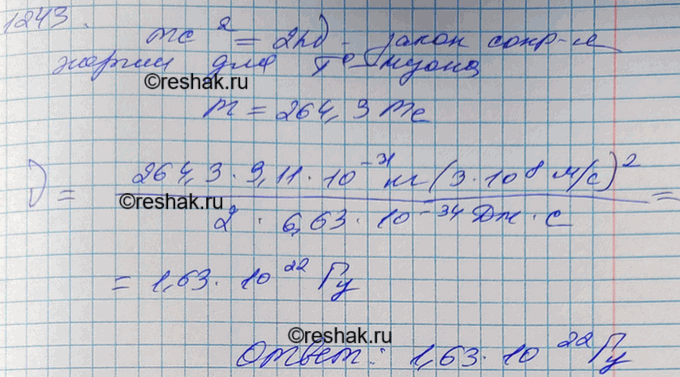 1243.
mc² = 2hν - закон сохр-я
энергии для π⁰ мезона
©reshak.ru
m = 264,3 me
ν = 264,3 · 9,11 · 10⁻³¹ кг (3 · 10⁸ м/с)² / 2 · 6,63 · 10⁻³⁴ Дж · с =
©reshak.ru
= 1,63 · 10²² Гц
©reshak.ru
Ответ: 1,63 · 10²² Гц